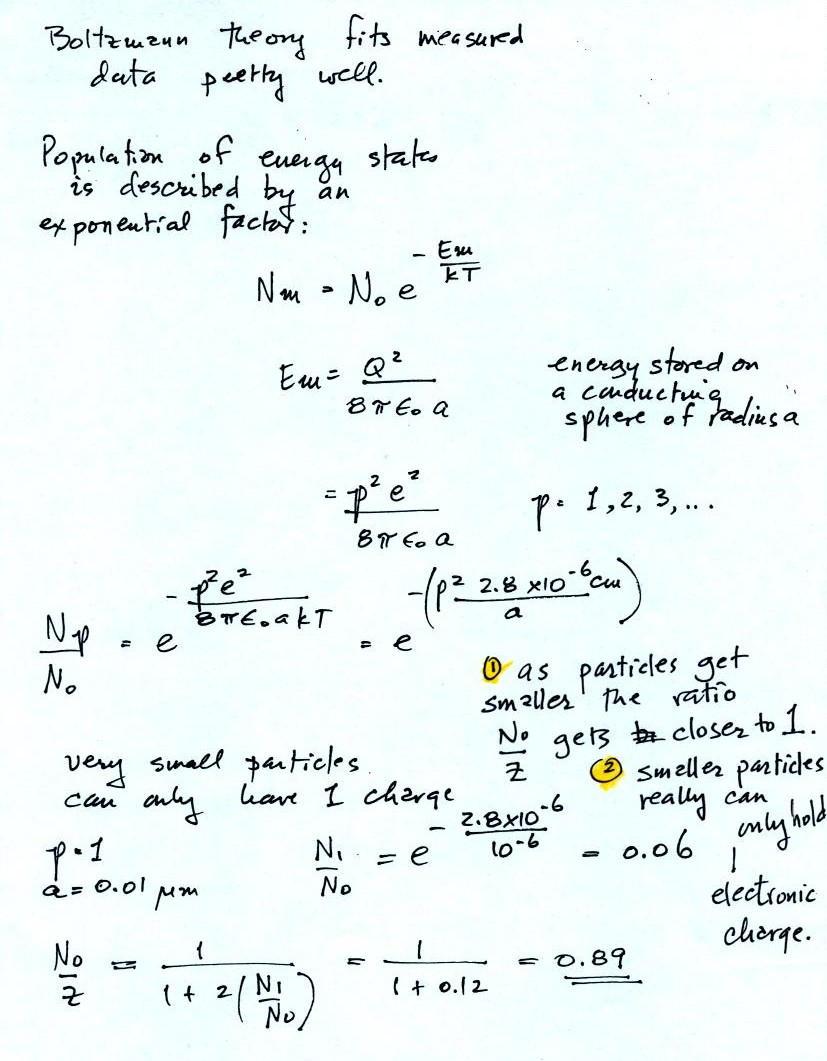 Boltzmann theory fits measured
data pretty well.
Population of energy states
is described by an
exponential factor:
Nm = N₀ e^(-Em/kT)
Em = Q²/(8πϵ₀a)
energy stored on
a conducting
sphere of radius a
= p²e²/(8πϵ₀a)
p = 1, 2, 3, ...
Np/N₀ = e^(-p²e²/(8πϵ₀akT)) = e^(-(p² 2.8 x10⁻⁶cm/a))
① as particles get
smaller the ratio
N₀/Z gets closer to 1.
② smaller particles
really can
only hold
1
electronic
charge.
very small particles
can only have 1 charge
p = 1
a = 0.01 μm
N₁/N₀ = e^(-2.8x10⁻⁶/10⁻⁶) = 0.06
N₀/Z = 1/(1 + 2(N₁/N₀)) = 1/(1 + 0.12) = 0.89